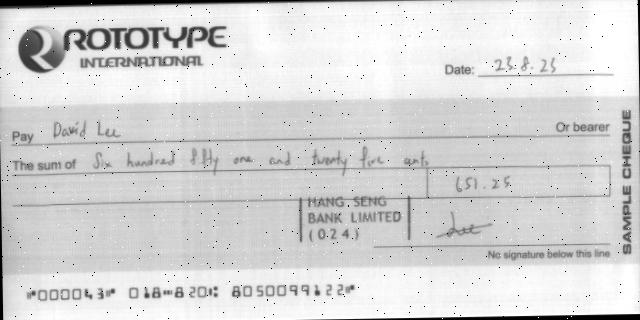 ROTOTYPE
INTERNATIONAL
Date: 23.8.23
Pay David Lee Or bearer
The sum of Six hundred fifty one and twenty five cents
651.25
HANG SENG
BANK LIMITED
(024)
Lee
No signature below this line
SAMPLE CHEQUE
"000043" 018-820: 8050099122"